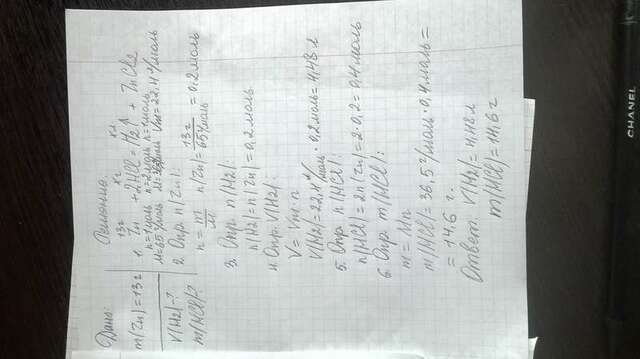 Дано:
m(Zn)=13г
V(H2)-?
m(HCl)-?
Решение.
13г x2 x1
1. Zn + 2HCl = H2↑ + ZnCl2
n=1моль n=2моль n=1моль
M=65г/моль Vm=22,4л/моль
2. Опр. n(Zn):
n = m/M n(Zn) = 13г/65г/моль = 0,2моль
3. Опр. n(H2):
n(H2)=n(Zn)=0,2моль
4. Опр. V(H2):
V = Vm·n
V(H2)=22,4л/моль · 0,2моль=4,48л
5. Опр. n(HCl):
n(HCl)=2n(Zn)=2·0,2=0,4моль
6. Опр m(HCl):
m = Mn
m(HCl)=36,5г/моль·0,4моль=
= 14,6 г.
Ответ. V(H2)=4,48л
m(HCl)=14,6г
CHANEL